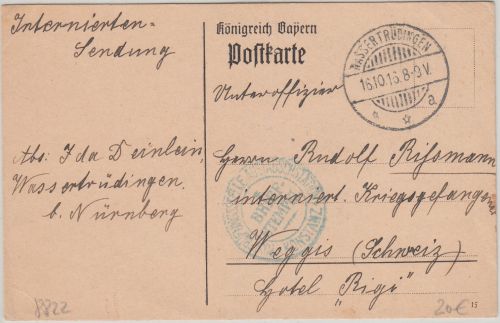 Internierten-
Sendung
Königreich Bayern
Postkarte
WASSERTRÜDINGEN
16.10.16.8-9V.
a
Unteroffizier
Abs: Ida Deinlein,
Wassertrüdingen.
b. Nürnberg
Herrn Rudolf Rissmann
interniert. Kriegsgefangen
Weggis (Schweiz)
Hotel "Rigi"
15
8822
20€